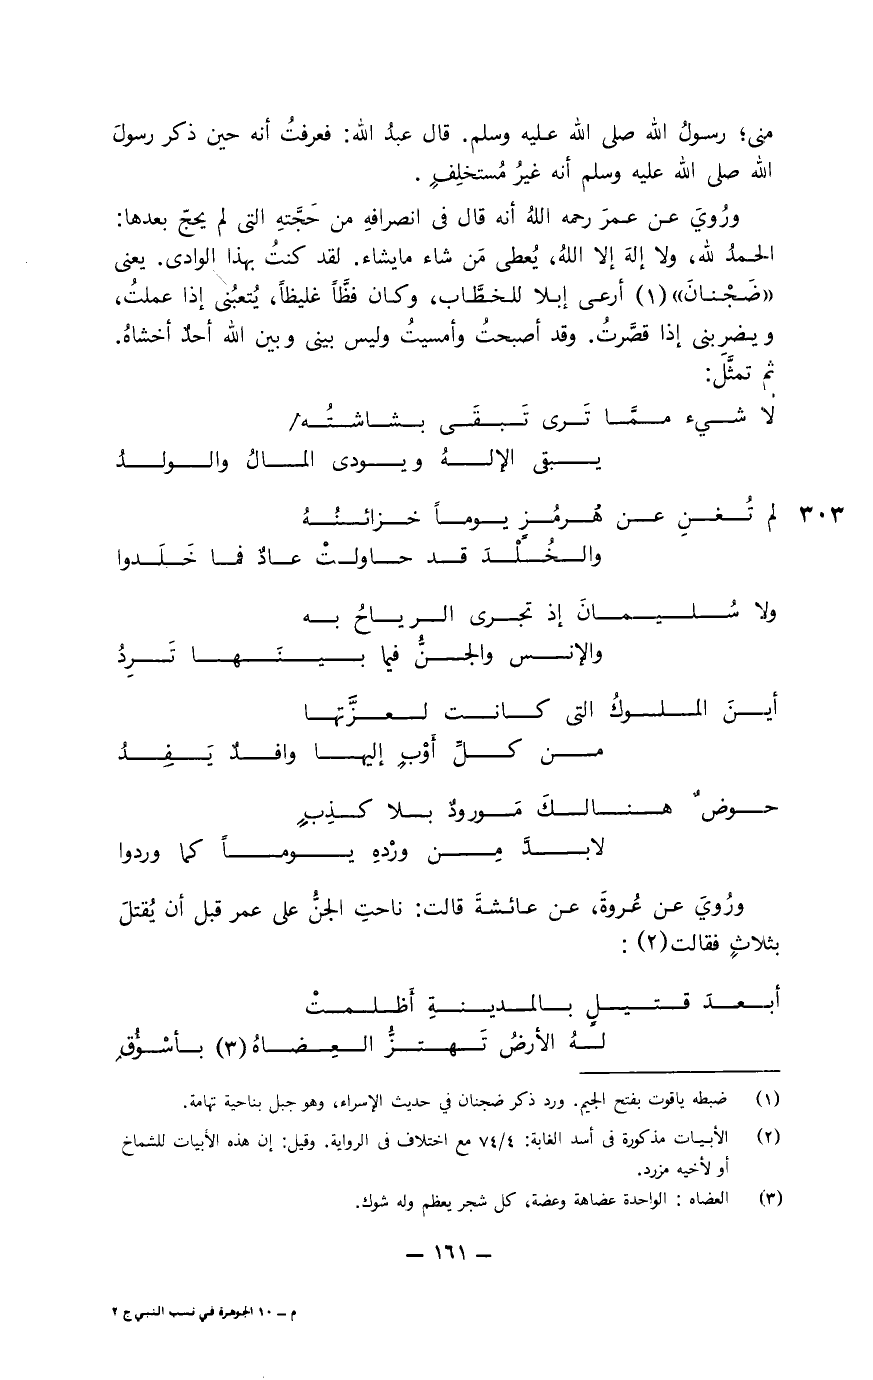 منى؛ رسولُ الله صلى الله عليه وسلم. قال عبدُ الله: فعرفتُ أنه حين ذكر رسولَ
الله صلى الله عليه وسلم أنه غيرُ مُستخلِفٍ .
ورُويَ عن عمرَ رحمه اللهُ أنه قال فى انصرافهِ من حَجَّتهِ التى لم يحجّ بعدها:
الحمدُ لله، ولا إلهَ إلا اللهُ، يُعطى مَن شاء مايشاء. لقد كنتُ بهذا الوادى. يعنى
«ضَجْنانَ» (١) أرعى إبلا للخطَّاب، وكان فظَّاً غليظاً، يُتعبُنى إذا عملتُ،
ويضربنى إذا قصَّرتُ. وقد أصبحتُ وأمسيتُ وليس بينى وبين الله أحدٌ أخشاهُ.
ثم تمثَّلَ:
لا شيء ممَّا تَرى تَبقَى بشاشتُه/
يبقى الإلهُ ويودى المالُ والولدُ
٣٠٣ لم تُغنِ عن هُرمُزٍ يوماً خزائنُهُ
والخُلْدَ قد حاولتْ عادٌ فما خَلَدوا
ولا سُليمانَ إذ تجرى الرياحُ به
والإنس والجنُّ فيما بينَها تَرِدُ
أينَ الملوكُ التى كانت لعزَّتها
من كلِّ أَوْبٍ إليها وافدٌ يَفِدُ
حوضٌ هنالكَ مَورودٌ بلا كذِبٍ
لابدَّ مِن ورْدهِ يوماً كما وردوا
ورُويَ عن عُروةَ، عن عائشةَ قالت: ناحتِ الجنُّ على عمر قبل أن يُقتلَ
بثلاثٍ فقالت(٢) :
أبعدَ قتيلٍ بالمدينةِ أَظلمتْ
لهُ الأرضُ تَهتزُّ العِضاهُ (٣) بأسْوُقِ
(١) ضبطه ياقوت بفتح الجيم. ورد ذكر ضجنان في حديث الإسراء، وهو جبل بناحية تهامة.
(٢) الأبيات مذكورة فى أسد الغابة: ٧٤/٤ مع اختلاف فى الرواية. وقيل: إن هذه الأبيات للشماخ
أو لأخيه مزرد.
(٣) العضاه : الواحدة عضاهة وعضة، كل شجر يعظم وله شوك.
— ١٦١ —
م – ١٠ الجوهرة في نسب النبي ج ٢